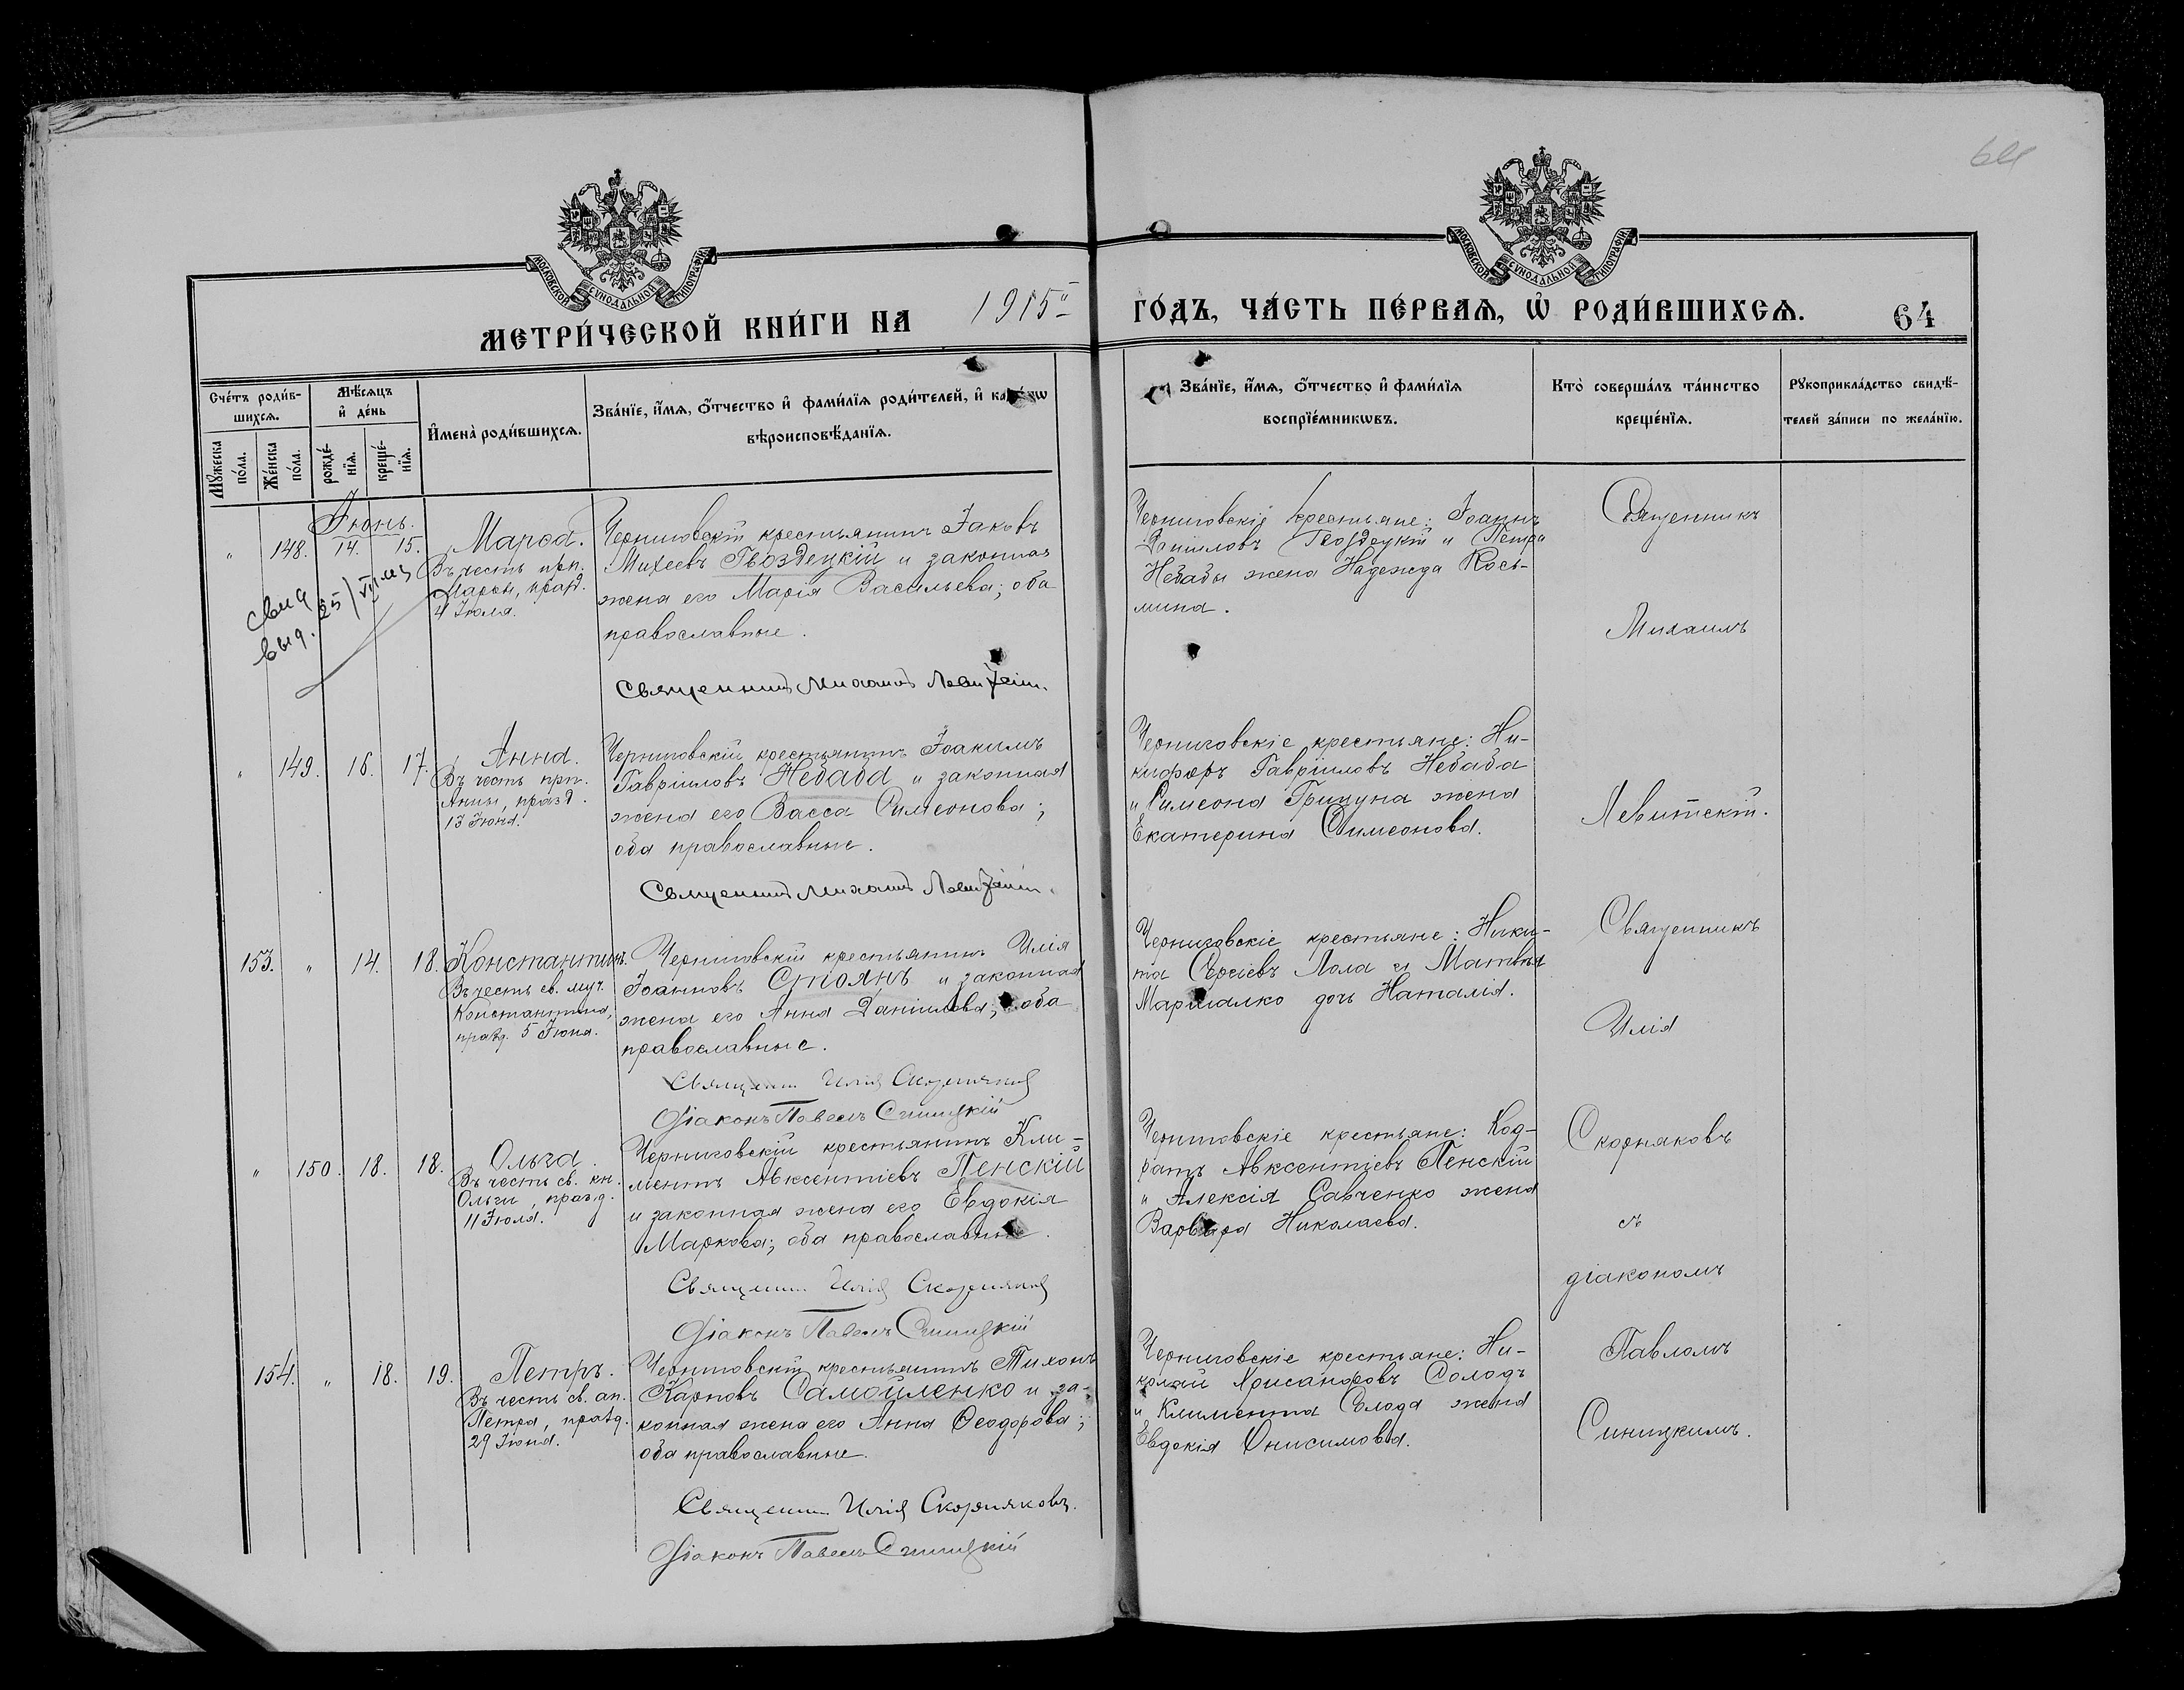 64
МОСКОВСКОЙ СѴНОДАЛЬНОЙ ТИПОГРАФІИ
МОСКОВСКОЙ СѴНОДАЛЬНОЙ ТИПОГРАФІИ
МЕТРИ́ЧЕСКОЙ КНИ́ГИ НА 1915й ГО́ДЪ, ЧА́СТЬ ПЕ́РВАѦ, Ѡ҆ РОДИ́ВШИХСѦ. 64
Сче́тъ роди́в-
шихсѧ.
Мꙋ́жеска
по́ла.
Же́нска
по́ла.
Мѣ́сѧцъ
и҆ де́нь
рожде́-
нїѧ.
креще́-
нїѧ.
И҆мена̀ роди́вшихсѧ.
Зва́нїе, и҆́мѧ, ѻ҆́тчество и҆ фами́лїѧ роди́телей, и҆ како́гѡ
вѣроисповѣ́данїѧ.
Зва́нїе, и҆́мѧ, ѻ҆́тчество и҆ фами́лїѧ
воспрїе́мникѡвъ.
Кто̀ соверша́лъ та́инство
креще́нїѧ.
Рꙋкоприкла́дство свидѣ́-
телей за́писи по жела́нїю.
Іюнь.
" 148. 14. 15.
Марѳа.
Въ честь прп.
Марѳы, празд.
4 Іюля.
выд. 25/VII
Черниговскій крестьянинъ Іаковъ
Михеевъ Гвоздецкій и законная
жена его Марія Васильева; оба
православные.
Священникъ Михаилъ Левитскій.
Черниговскіе крестьяне: Іоаннъ
Даніиловъ Гвоздецкій и Петра
Небабы жена Надежда Кось-
мина.
Священникъ
Михаилъ
Левитскій.
" 149. 16. 17.
Анна.
Въ честь прп.
Анны, празд.
13 Іюня.
Черниговскій крестьянинъ Іоакимъ
Гавріиловъ Небаба и законная
жена его Васса Симеонова;
оба православные.
Священникъ Михаилъ Левитскій.
Черниговскіе крестьяне: Ни-
кифоръ Гавріиловъ Небаба
и Симеона Грицуна жена
Екатерина Симеонова.
153. " 14. 18.
Константинъ.
Въ честь св. муч.
Константина,
празд. 5 Іюня.
Черниговскій крестьянинъ Илія
Іоанновъ Стоянъ и законная
жена его Анна Даніилова; оба
православные.
Священникъ Илія Скорняковъ
Діаконъ Павелъ Синицкій
Черниговскіе крестьяне: Ники-
та Сергіевъ Лола и Матвѣя
Маршалко дочь Наталія.
Священникъ
Илія
Скорняковъ
съ
діакономъ
Павломъ
Синицкимъ.
" 150. 18. 18.
Ольга.
Въ честь св. кн.
Ольги, празд.
11 Іюля.
Черниговскій крестьянинъ Кли-
ментъ Авксентіевъ Пенскій
и законная жена его Евдокія
Маркова; оба православные.
Священникъ Илія Скорняковъ
Діаконъ Павелъ Синицкій
Черниговскіе крестьяне: Код-
ратъ Авксентіевъ Пенскій
и Алексія Савченко жена
Варвара Николаева.
154. " 18. 19.
Петръ.
Въ честь св. ап.
Петра, празд.
29 Іюня.
Черниговскій крестьянинъ Тихонъ
Карповъ Самойленко и за-
конная жена его Анна Ѳеодорова;
оба православные.
Священникъ Илія Скорняковъ.
Діаконъ Павелъ Синицкій
Черниговскіе крестьяне: Ни-
колай Хрисанфовъ Солодъ
и Климента Солода жена
Евдокія Онисимова.